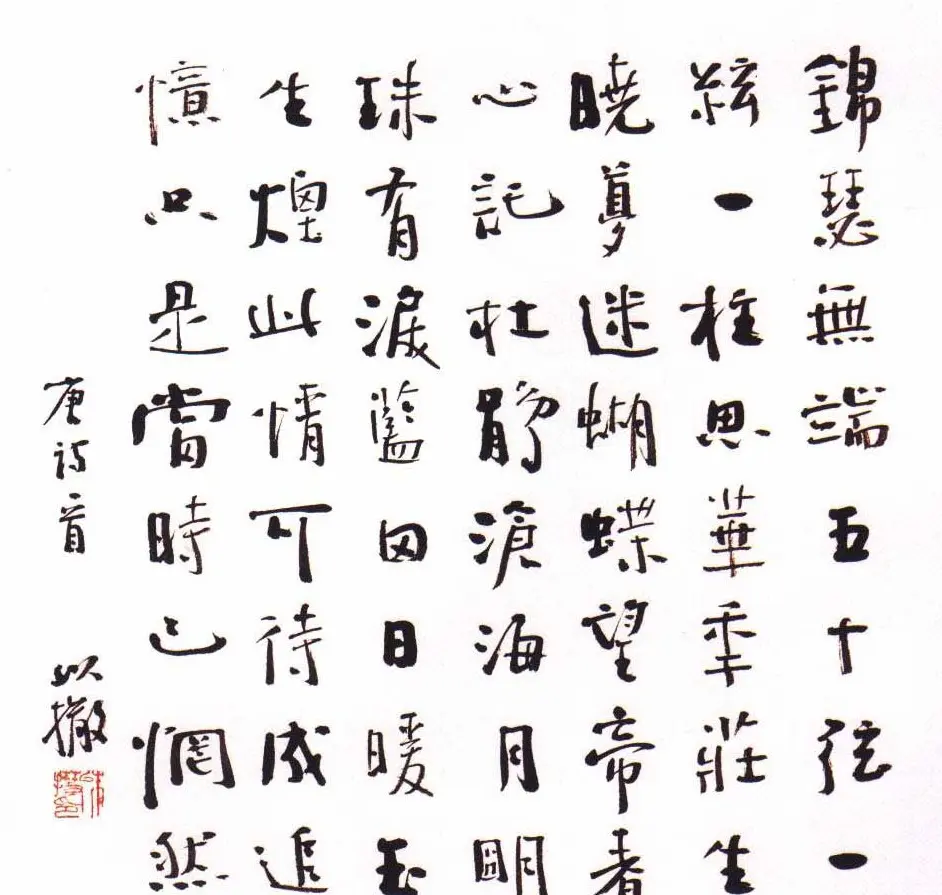 錦瑟無端五十弦一
絃一柱思華年莊生
曉夢迷蝴蝶望帝春
心託杜鵑滄海月明
珠有淚藍田日暖玉
生煙此情可待成追
憶只是當時已惘然
唐诗一首
以撒